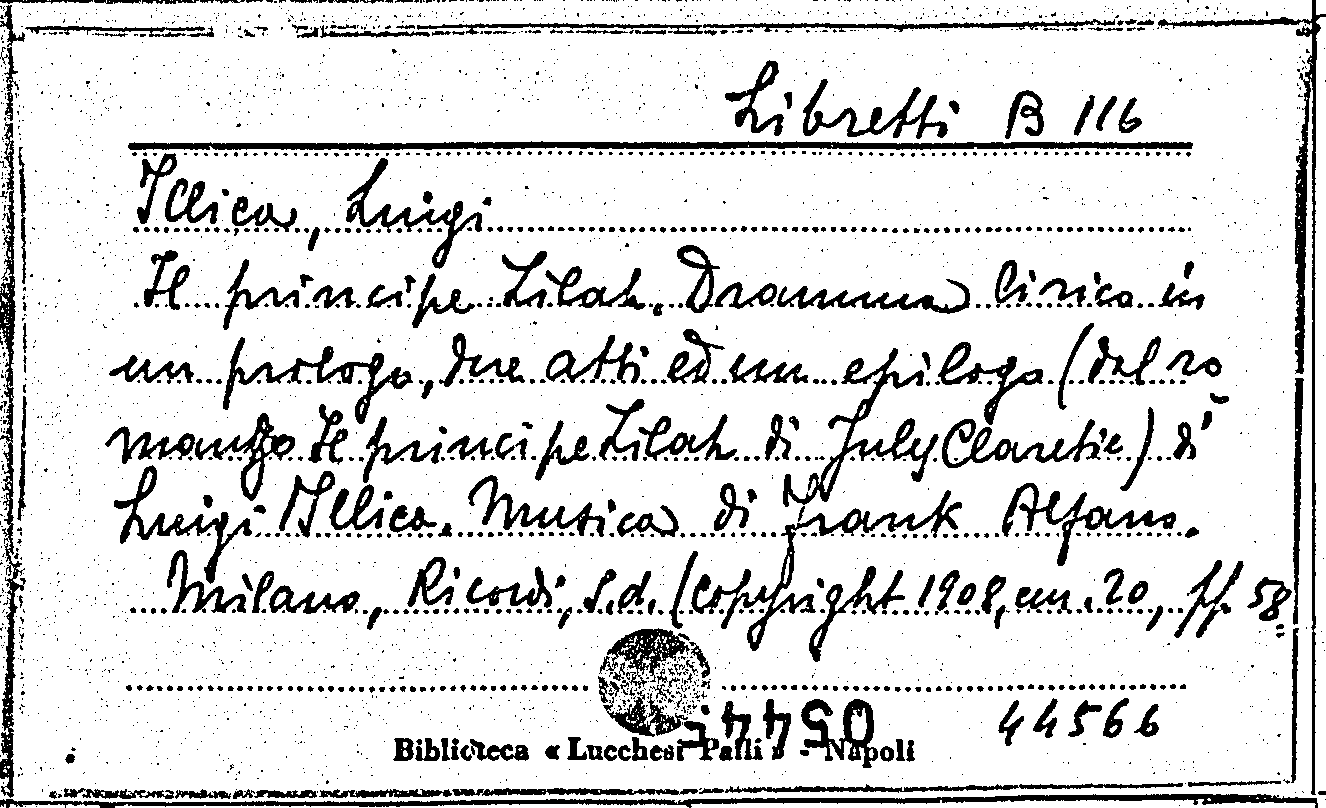 Libretti B 116
Illica, Luigi
Il principe Zilah. Dramma lirico in
un prologo, due atti ed un epilogo (dal ro
manzo Il principe Zilah di July Claretie) di
Luigi Illica. Musica di Frank Alfano.
Milano, Ricordi, s.d. (Copyright 1908, cm. 20, pp. 58.
44566
Biblioteca « Lucchesi Palli » - Napoli